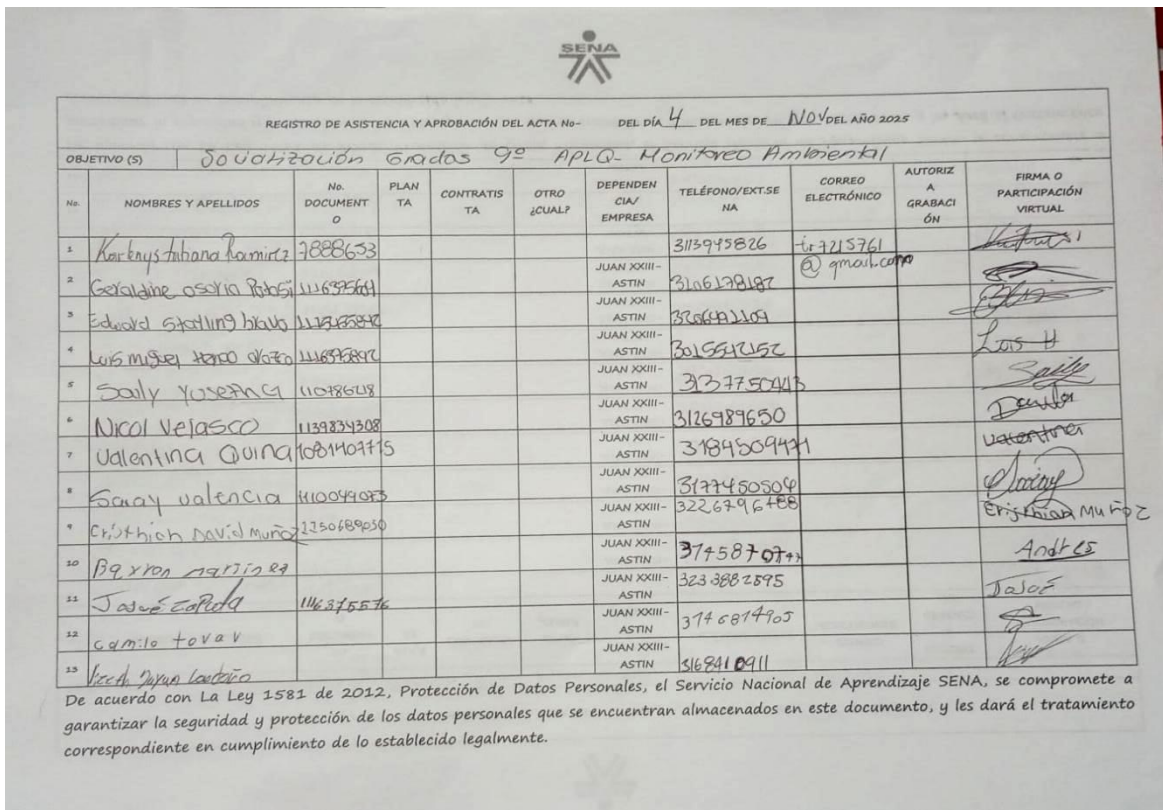 SENA
REGISTRO DE ASISTENCIA Y APROBACIÓN DEL ACTA No- DEL DÍA 4 DEL MES DE NOV DEL AÑO 2025
OBJETIVO (S) Socialización Grados 9º APLQ- Monitoreo Ambiental
No. NOMBRES Y APELLIDOS No. DOCUMENTO PLANTA CONTRATISTA OTRO ¿CUAL? DEPENDENCIA/ EMPRESA TELÉFONO/EXT.SENA CORREO ELECTRÓNICO AUTORIZA GRABACIÓN FIRMA O PARTICIPACIÓN VIRTUAL
1 Ramirez 7888653 3113945826 tr7215761@gmail.com
2 Geraldine osorio JUAN XXIII-ASTIN 3106178187
3 Edward JUAN XXIII-ASTIN
4 Luis miguel JUAN XXIII-ASTIN 3015542152 Luis H
5 Saily JUAN XXIII-ASTIN 3137750443 Saily
6 Nicol Velasco 1139834308 JUAN XXIII-ASTIN 3126989650
7 Valentina Quina 1081407715 JUAN XXIII-ASTIN 3184509471 Valentina
8 Saray valencia JUAN XXIII-ASTIN 3177450504
9 Cristhian David Muñoz JUAN XXIII-ASTIN 3226796788 Cristhian Muñoz
10 JUAN XXIII-ASTIN Andres
11 Josué Zapata 1116375576 JUAN XXIII-ASTIN 3233882595 Josué
12 camilo tovar JUAN XXIII-ASTIN
13 JUAN XXIII-ASTIN 3168410911
De acuerdo con La Ley 1581 de 2012, Protección de Datos Personales, el Servicio Nacional de Aprendizaje SENA, se compromete a
garantizar la seguridad y protección de los datos personales que se encuentran almacenados en este documento, y les dará el tratamiento
correspondiente en cumplimiento de lo establecido legalmente.